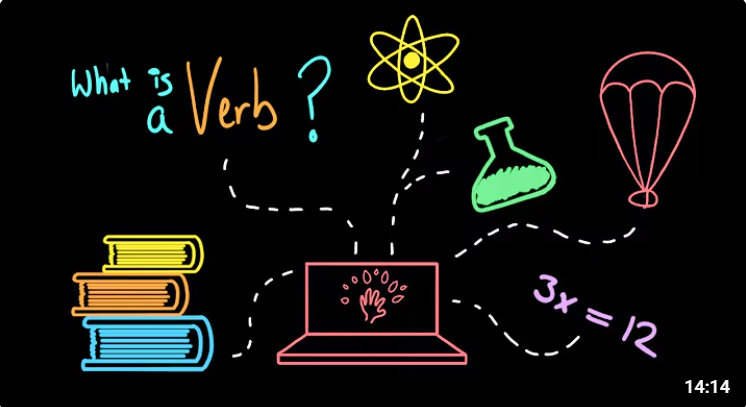 What is
a Verb ?
3x = 12
14:14